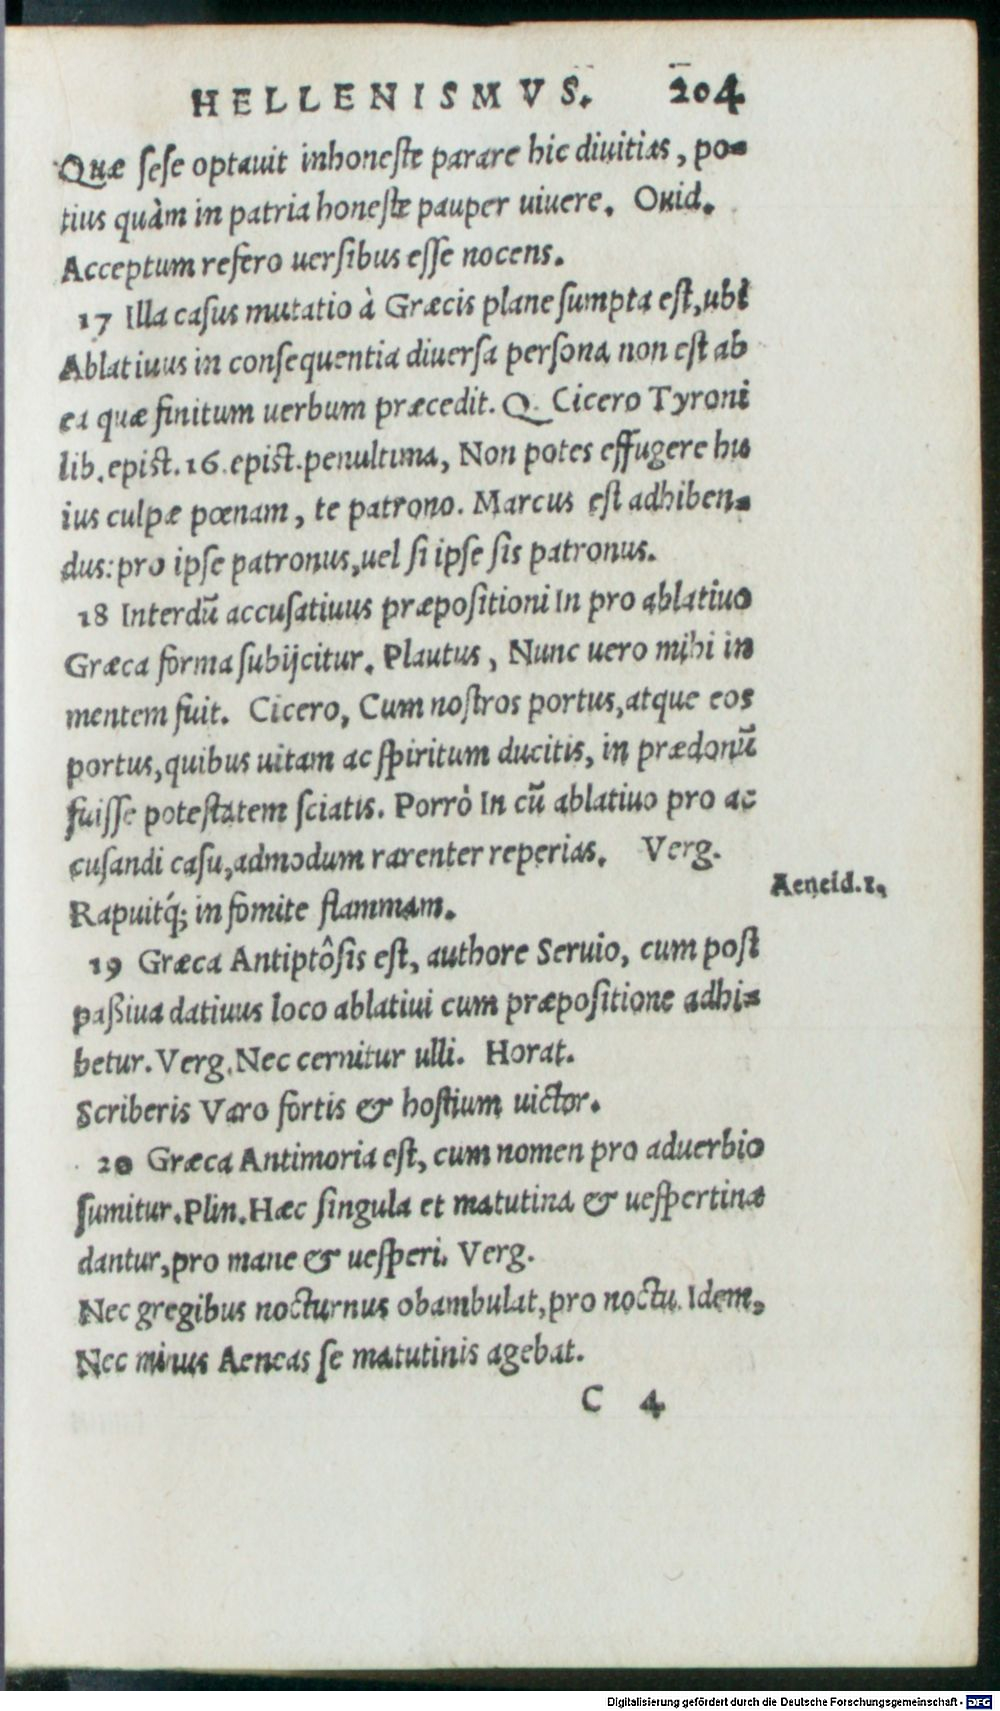 HELLENISMVS. 204
Quæ sese optauit inhoneste parare hic diuitias, po-
tius quàm in patria honeste pauper uiuere. Ouid.
Acceptum refero uersibus esse nocens.
17 Illa casus mutatio à Græcis plane sumpta est, ubi
Ablatiuus in consequentia diuersa persona non est ab
ea quæ finitum uerbum præcedit. Q. Cicero Tyroni
lib. epist. 16. epist. penultima, Non potes effugere hu
ius culpæ pœnam, te patrono. Marcus est adhiben-
dus: pro ipse patronus, uel si ipse sis patronus.
18 Interdū accusatiuus præpositioni In pro ablatiuo
Græca forma subijcitur. Plautus, Nunc uero mihi in
mentem fuit. Cicero, Cum nostros portus, atque eos
portus, quibus uitam ac spiritum ducitis, in prædonū
fuisse potestatem sciatis. Porrò In cū ablatiuo pro ac
cusandi casu, admodum rarenter reperias. Verg.
Aeneid. 1.
Rapuitq́; in fomite flammam.
19 Græca Antiptôsis est, authore Seruio, cum post
paßiua datiuus loco ablatiui cum præpositione adhi-
betur. Verg. Nec cernitur ulli. Horat.
Scriberis Varo fortis & hostium uictor.
20 Græca Antimoria est, cum nomen pro aduerbio
sumitur. Plin. Hæc singula et matutina & uespertina
dantur, pro mane & uesperi. Verg.
Nec gregibus nocturnus obambulat, pro noctu. Idem,
Nec minus Aeneas se matutinis agebat.
C 4
Digitalisierung gefördert durch die Deutsche Forschungsgemeinschaft - DFG